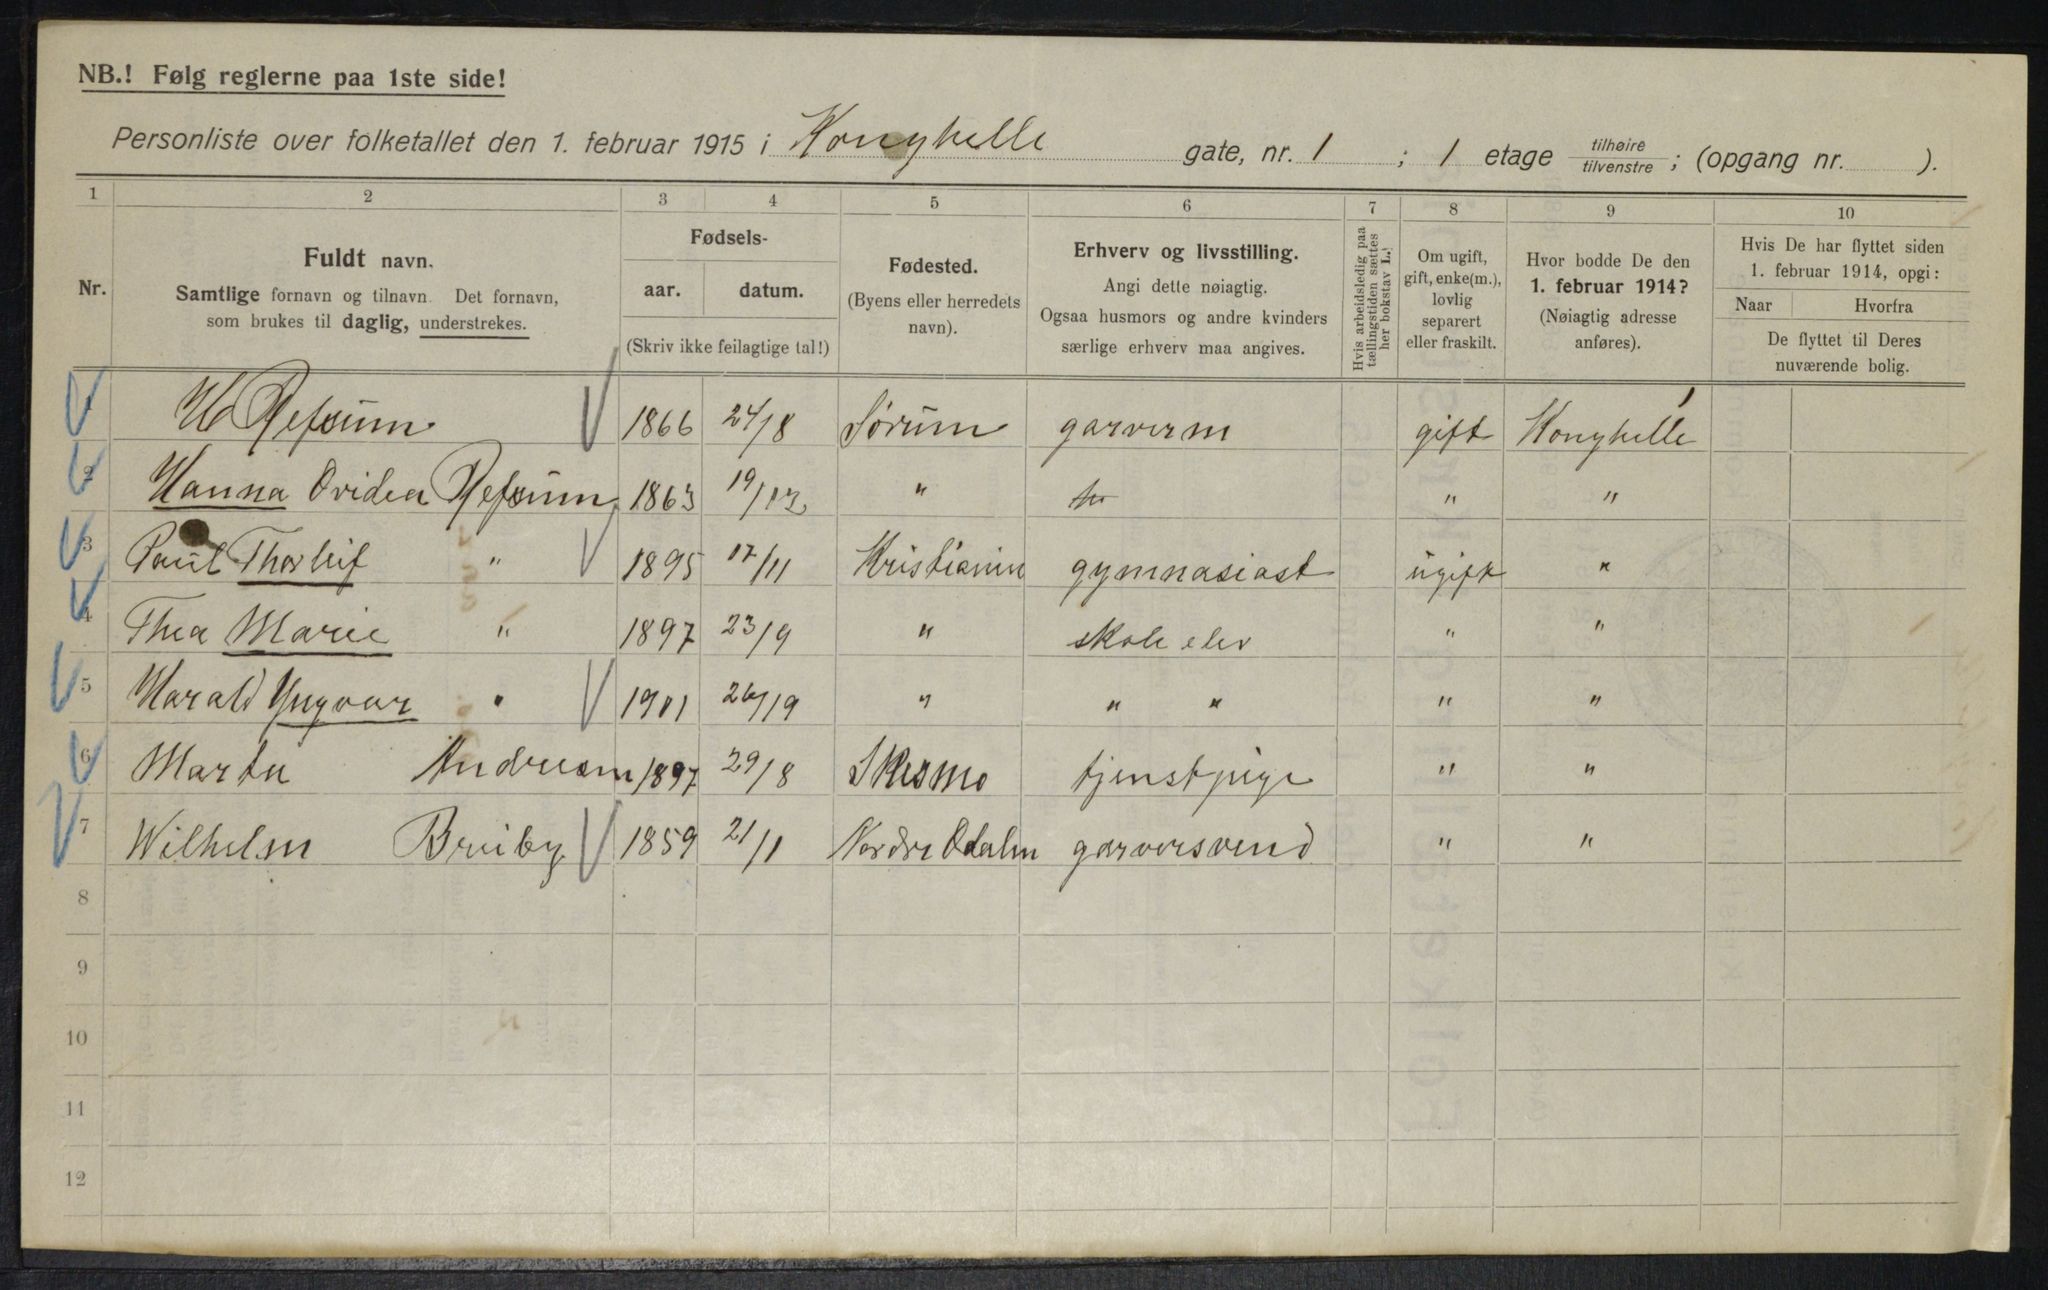 NB.! Følg reglerne paa 1ste side!
Personliste over folketallet den 1. februar 1915 i Konghelle gate, nr. 1 ; 1 etage tilhøire tilvenstre ; (opgang nr. ).
1 2 3 4 5 6 7 8 9 10
Nr.
Fuldt navn.
Samtlige fornavn og tilnavn. Det fornavn,
som brukes til daglig, understrekes.
Fødsels-
aar. datum.
(Skriv ikke feilagtige tal!)
Fødested.
(Byens eller herredets
navn).
Erhverv og livsstilling.
Angi dette nøiagtig.
Ogsaa husmors og andre kvinders
særlige erhverv maa angives.
Hvis arbeidsledig paa
tællingstiden sættes
her bokstav L.
Om ugift,
gift, enke(m.),
lovlig
separert
eller fraskilt.
Hvor bodde De den
1. februar 1914?
(Nøiagtig adresse
anføres).
Hvis De har flyttet siden
1. februar 1914, opgi:
Naar Hvorfra
De flyttet til Deres
nuværende bolig.
1 H Refsum 1866 24/8 Sørum garverm gift Konghelle 1
2 Hanna Ovidea Refsum 1863 19/12 " " "
3 Paul Thorleif " 1895 17/11 Kristiania gymnasiast ugift "
4 Thea Marie " 1897 23/9 " skole elev " "
5 Harald Yngvar " 1901 26/9 " " " " "
6 Marta Andresen 1897 29/8 Skesmo tjenstpige " "
7 Wilhelm Bruiby 1859 21/1 Nordre Odalen garversvend " "
8
9
10
11
12